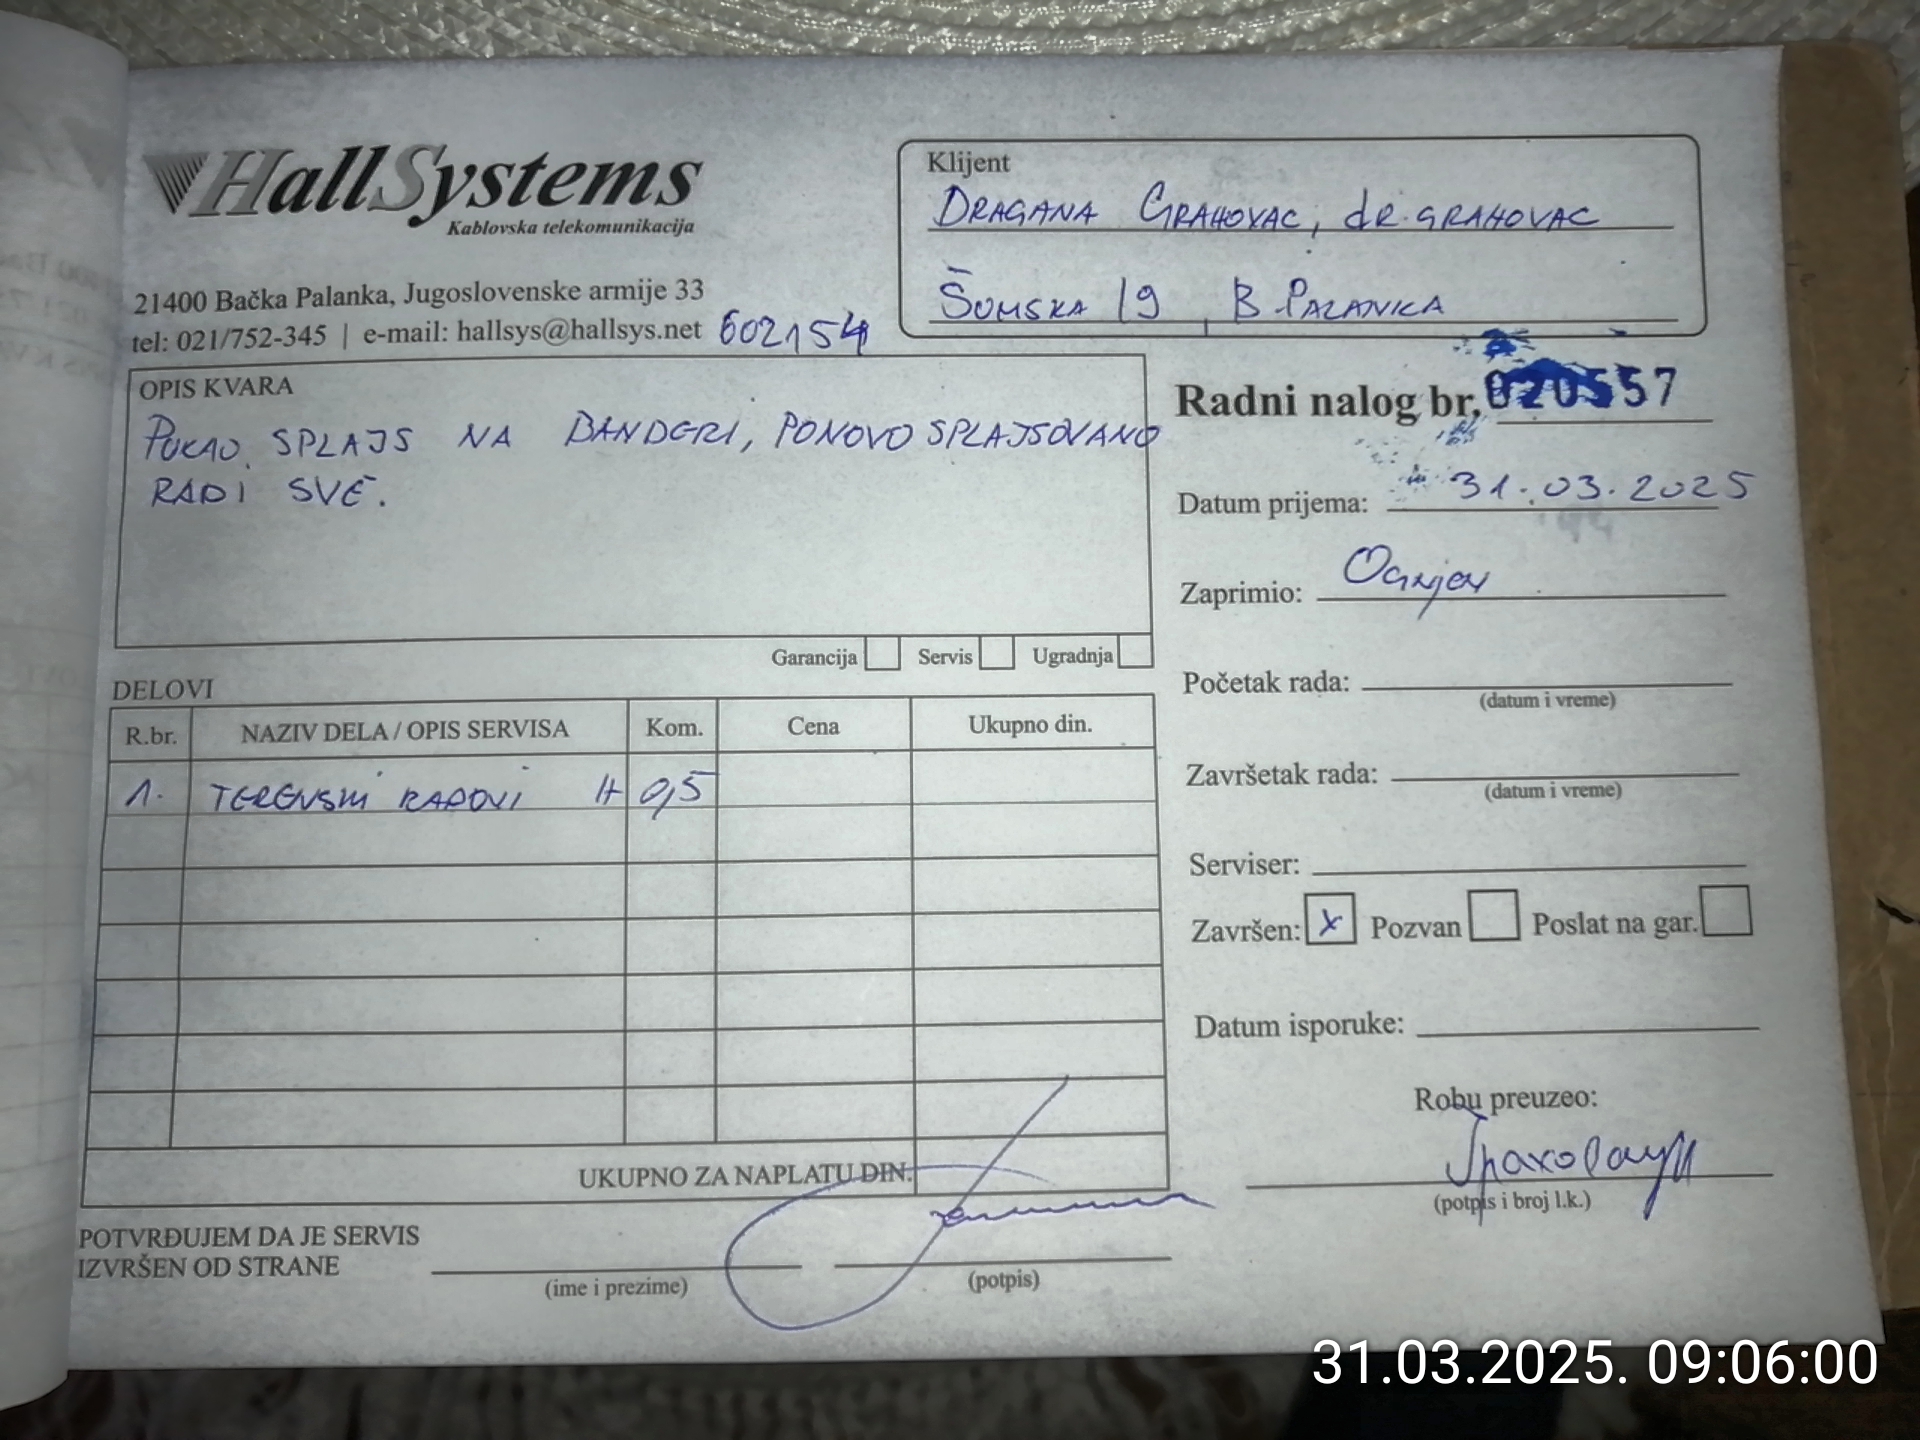 HallSystems
Kablovska telekomunikacija
21400 Bačka Palanka, Jugoslovenske armije 33
tel: 021/752-345 | e-mail: hallsys@hallsys.net 602154
Klijent
DRAGANA GRAHOVAC, dR. GRAHOVAC
ŠUMSKA 19, B. PALANKA
OPIS KVARA
PUKAO SPLAJS NA BANDERI, PONOVO SPLAJSOVANO
RADI SVE.
Garancija Servis Ugradnja
Radni nalog br. 020557
Datum prijema: 31.03.2025
Zaprimio: Ognjen
Početak rada:
(datum i vreme)
Završetak rada:
(datum i vreme)
Serviser:
Završen: x Pozvan Poslat na gar.
Datum isporuke:
Robu preuzeo:
(potpis i broj l.k.)
DELOVI
R.br. NAZIV DELA / OPIS SERVISA Kom. Cena Ukupno din.
1. TERENSKI RADOVI H 0,5
UKUPNO ZA NAPLATU DIN.
POTVRĐUJEM DA JE SERVIS
IZVRŠEN OD STRANE
(ime i prezime) (potpis)
31.03.2025. 09:06:00